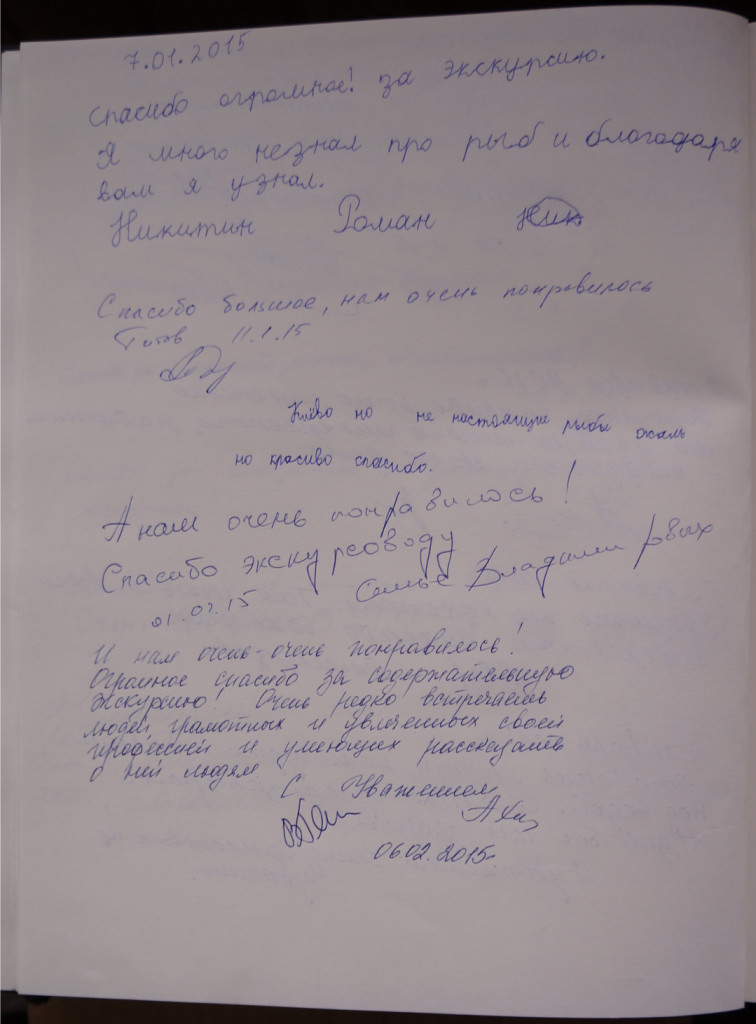 7.01.2015
Спасибо огромное! за экскурсию.
Я много незнал про рыб и благодаря
вам я узнал.
Никитин Роман Ник
Спасибо большое, нам очень понравилось
Титов 11.1.15
Клёво но не настоящие рыбы жаль
но красиво спасибо.
А нам очень понравилось!
Спасибо экскурсоводу
01.02.15 Семья Владимировых
И нам очень-очень понравилось!
Огромное спасибо за содержательную
экскурсию! Очень редко встречаешь
людей грамотных и увлеченных своей
профессией и умеющих рассказать
о ней людям
С Уважением
06.02.2015г.